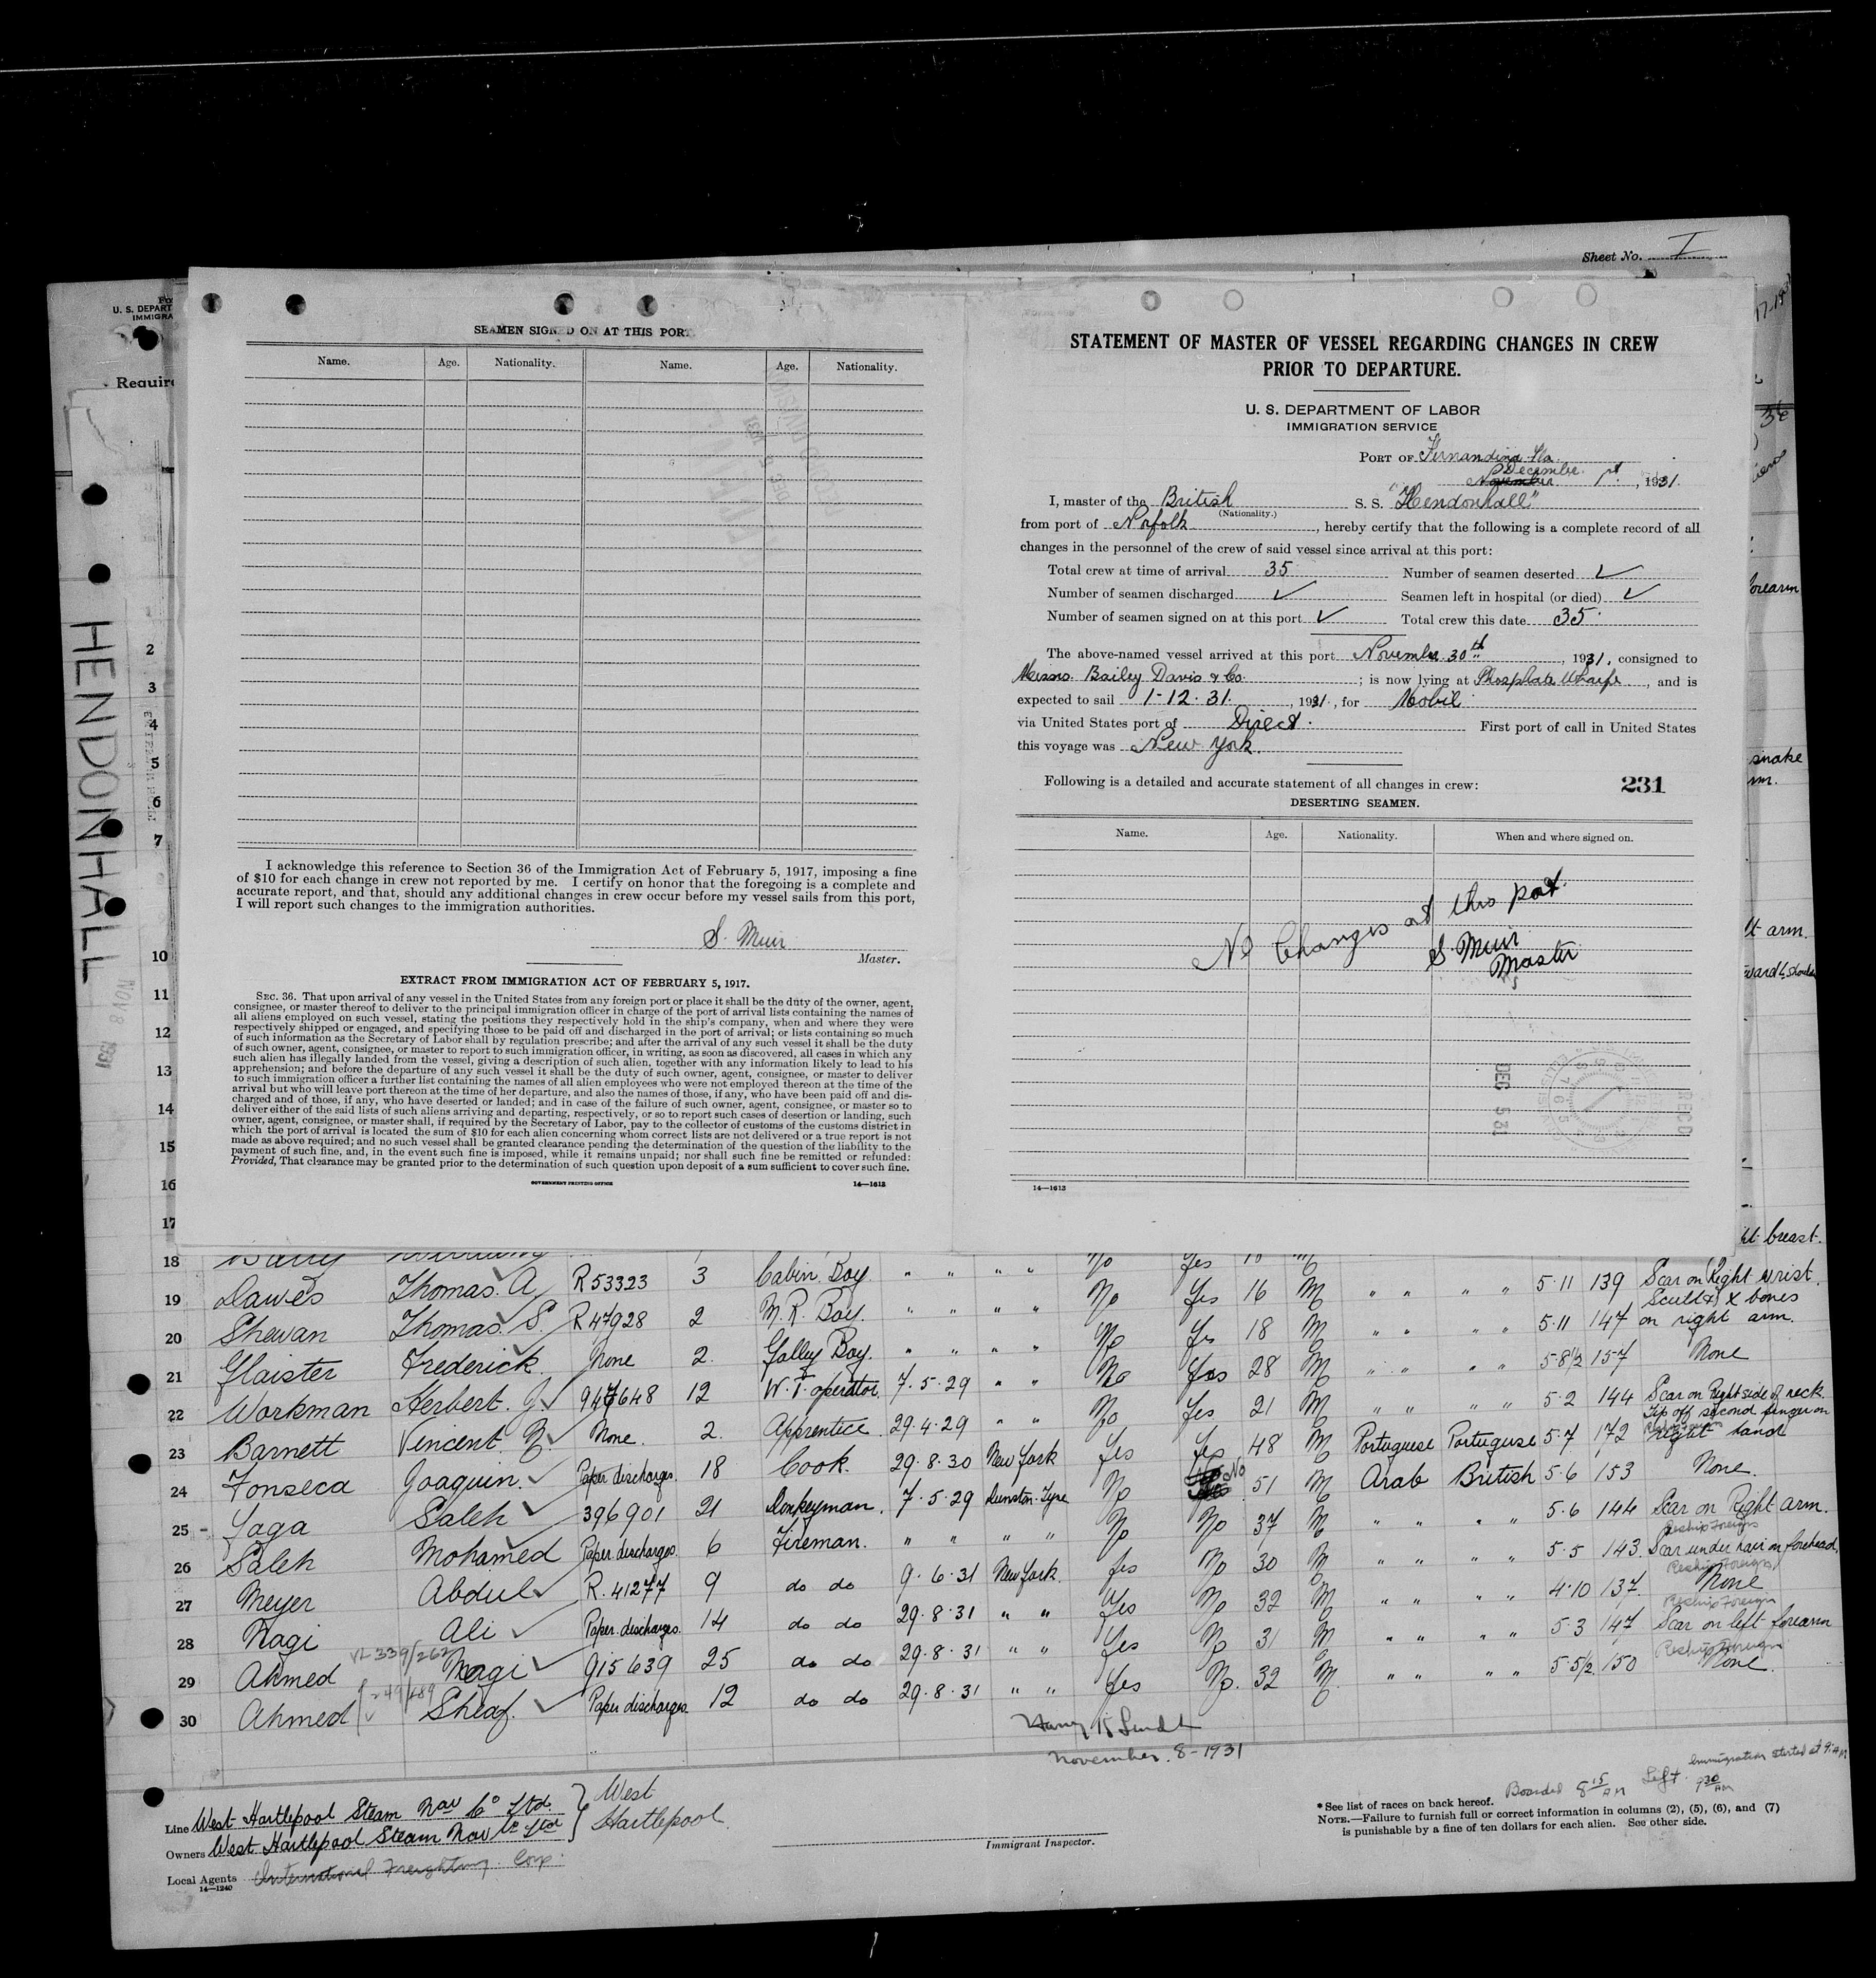 Sheet No. I
U. S. DEPART
IMMIGRA
Require
HENDONHALL
NOV 8 1931
SEAMEN SIGNED ON AT THIS PORT
Name. Age. Nationality. Name. Age. Nationality.
I acknowledge this reference to Section 36 of the Immigration Act of February 5, 1917, imposing a fine
of $10 for each change in crew not reported by me. I certify on honor that the foregoing is a complete and
accurate report, and that, should any additional changes in crew occur before my vessel sails from this port,
I will report such changes to the immigration authorities.
S. Muir
Master.
EXTRACT FROM IMMIGRATION ACT OF FEBRUARY 5, 1917.
SEC. 36. That upon arrival of any vessel in the United States from any foreign port or place it shall be the duty of the owner, agent,
consignee, or master thereof to deliver to the principal immigration officer in charge of the port of arrival lists containing the names of
all aliens employed on such vessel, stating the positions they respectively hold in the ship's company, when and where they were
respectively shipped or engaged, and specifying those to be paid off and discharged in the port of arrival; or lists containing so much
of such information as the Secretary of Labor shall by regulation prescribe; and after the arrival of any such vessel it shall be the duty
of such owner, agent, consignee, or master to report to such immigration officer, in writing, as soon as discovered, all cases in which any
such alien has illegally landed from the vessel, giving a description of such alien, together with any information likely to lead to his
apprehension; and before the departure of any such vessel it shall be the duty of such owner, agent, consignee, or master to deliver
to such immigration officer a further list containing the names of all alien employees who were not employed thereon at the time of the
arrival but who will leave port thereon at the time of her departure, and also the names of those, if any, who have been paid off and dis-
charged and of those, if any, who have deserted or landed; and in case of the failure of such owner, agent, consignee, or master so to
deliver either of the said lists of such aliens arriving and departing, respectively, or so to report such cases of desertion or landing, such
owner, agent, consignee, or master shall, if required by the Secretary of Labor, pay to the collector of customs of the customs district in
which the port of arrival is located the sum of $10 for each alien concerning whom correct lists are not delivered or a true report is not
made as above required; and no such vessel shall be granted clearance pending the determination of the question of the liability to the
payment of such fine, and, in the event such fine is imposed, while it remains unpaid; nor shall such fine be remitted or refunded:
Provided, That clearance may be granted prior to the determination of such question upon deposit of a sum sufficient to cover such fine.
GOVERNMENT PRINTING OFFICE 14—1613
STATEMENT OF MASTER OF VESSEL REGARDING CHANGES IN CREW
PRIOR TO DEPARTURE.
U. S. DEPARTMENT OF LABOR
IMMIGRATION SERVICE
PORT OF Fernandina Fla.
November December 1st, 1931.
I, master of the British S. S. "Hendonhall"
(Nationality.)
from port of Norfolk, hereby certify that the following is a complete record of all
changes in the personnel of the crew of said vessel since arrival at this port:
Total crew at time of arrival 35 Number of seamen deserted ✓
Number of seamen discharged ✓ Seamen left in hospital (or died) ✓
Number of seamen signed on at this port ✓ Total crew this date 35.
The above-named vessel arrived at this port November 30th, 1931, consigned to
Messrs. Bailey Davis & Co. ; is now lying at Phosphate Wharfe, and is
expected to sail 1-12.31., 1931, for Mobil
via United States port of Direct. First port of call in United States
this voyage was New York.
Following is a detailed and accurate statement of all changes in crew: 231
DESERTING SEAMEN.
Name. Age. Nationality. When and where signed on.
No Changes at this port.
S. Muir
Master
DEC 5 31
REC'D
14—1613
forearm
snake
arm.
lt arm.
ht breast.
2
3
4
5
6
7
10
11
12
13
14
15
16
17
18 Cabin Boy. " " " " No Yes M
19 Dawes Thomas. A. R53323 3 M. R. Boy. " " " " No Yes 16 M " " " " 5.11 139 Scar on Right wrist.
20 Shewan Thomas. S. R47928 2 Galley Boy. " " " " No Yes 18 M " " " " 5.11 147 Scull & X bones on right arm.
21 Glaister Frederick. None 2. W. T. operator. 7.5.29 " " No Yes 28 M " " " " 5.8½ 157 None
22 Workman Herbert. J. 947648 12 Apprentice 29.4.29 " " No Yes 21 M " " " " 5.2 144 Scar on Right side of neck.
23 Barnett Vincent. None. 2. Cook. 29.8.30 New York Yes Yes 48 M Portuguese Portuguese 5.7 172 Tip off second finger on right hand
24 Fonseca Joaquin. Paper discharges. 18 Donkeyman. 7.5.29 Dunston. Tyne No No 51 M Arab British 5.6 153 None.
25 Yaga Saleh 396901 21 Fireman. " " " " No No 37 M " " " " 5.6 144 Scar on Right arm.
26 Saleh Mohamed Paper discharges. 6 do do 9.6.31 New York. Yes No 30 M " " " " 5.5 143. Scar under hair on forehead. Reship Foreign
27 Meyer Abdul R. 41277 9 do do 29.8.31 " " Yes No 32 M " " " " 4.10 137. None Reship Foreign
28 Nagi Ali Paper discharges. 14 do do 29.8.31 " " Yes No 31 M " " " " 5.3 147 Scar on left forearm Reship Foreign
29 Ahmed Nagi 915639 25 do do 29.8.31 " " Yes No. 32 M. " " " " 5.5½ 150 None. Reship Foreign
30 Ahmed Sheaf. Paper discharges. 12
November. 8-1931
Immigration started at 9: AM
Boarded 8 15 AM Left 9 30 AM
Line West Hartlepool Steam Nav Co Ltd.
Owners West Hartlepool Steam Nav Co Ltd
West Hartlepool.
Local Agents International Freighting Corp.
14—1240
Immigrant Inspector.
*See list of races on back hereof.
NOTE.—Failure to furnish full or correct information in columns (2), (5), (6), and (7)
is punishable by a fine of ten dollars for each alien. See other side.